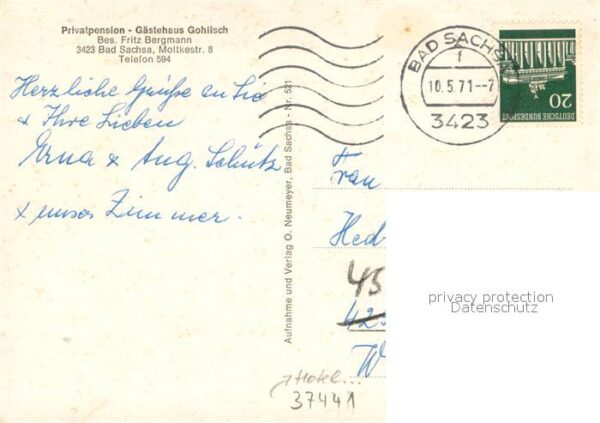 Privatpension - Gästehaus Gohlisch
Bes. Fritz Bergmann
3423 Bad Sachsa, Moltkestr. 8
Telefon 594
Herzliche Grüße an Sie
& Ihre Lieben
Erna & Aug. Schütz
x unser Zimmer.
Aufnahme und Verlag O. Neumeyer, Bad Sachsa - Nr. 521
BAD SACHSA
f
10.5.71--7
3423
20
DEUTSCHE BUNDESPOST
Frau
Hed
45
423
W
Hotel...
37441
privacy protection
Datenschutz